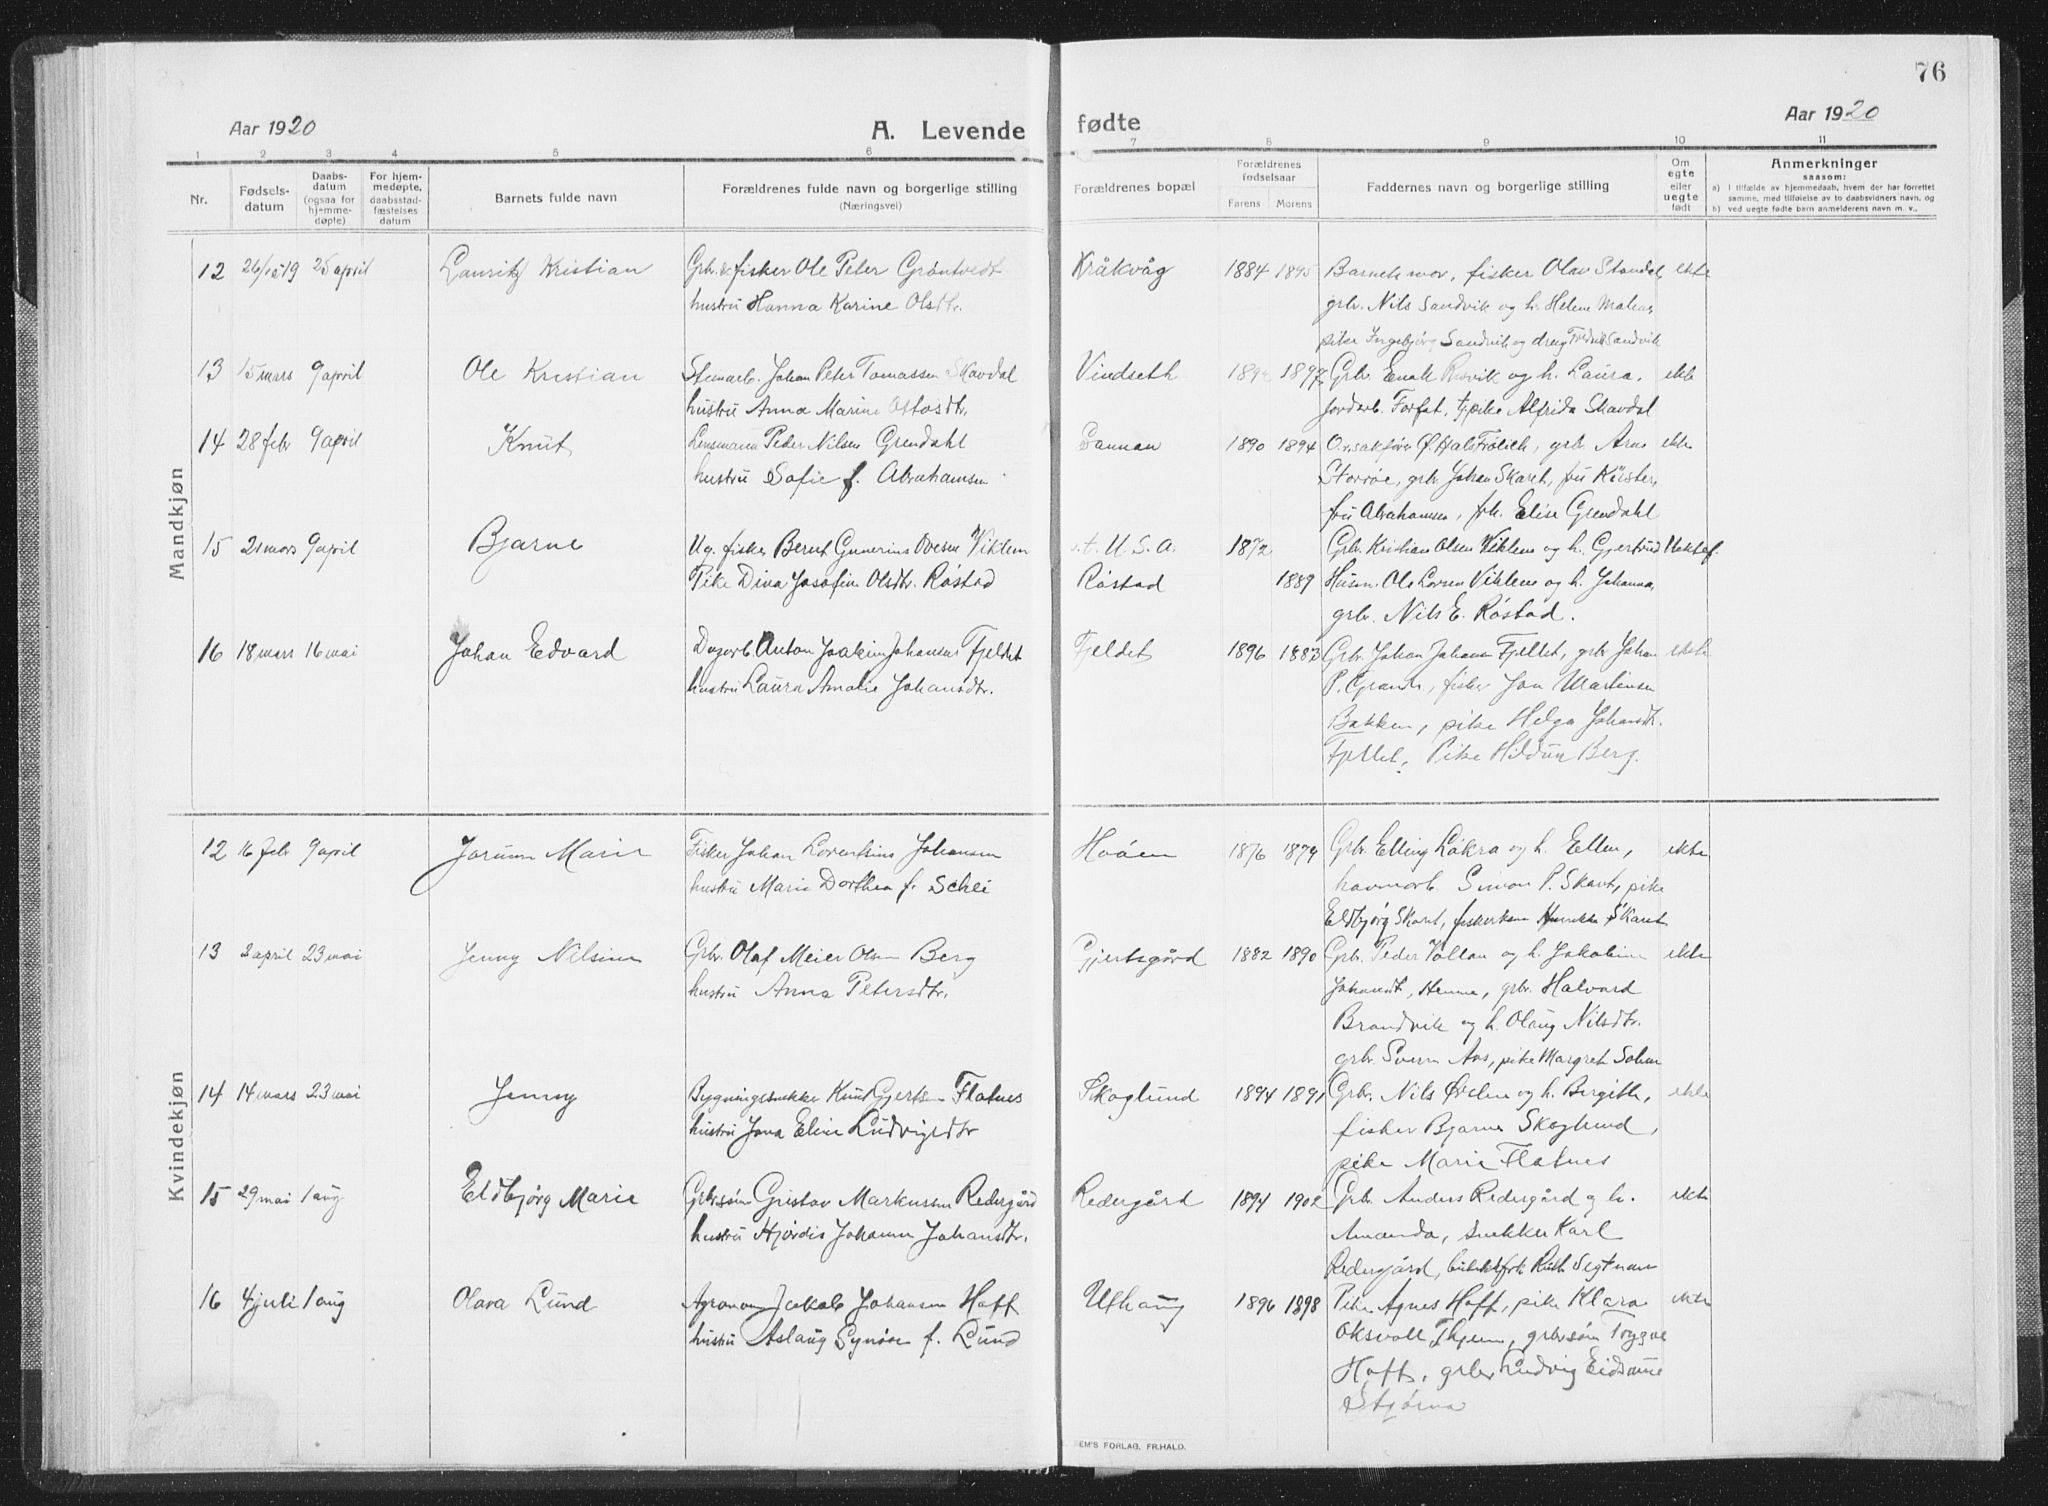 76
Aar 1920
A. Levende
fødte
Aar 1920
1 2 3 4 5 6 7 8 9 10 11
Nr.
Fødsels-
datum
Daabs-
datum
(ogsaa for
hjemme-
døpte)
For hjem-
medøpte,
daabsstad-
fæstelses
datum
Barnets fulde navn
Forældrenes fulde navn og borgerlige stilling
(Næringsvei)
Forældrenes bopæl
Forældrenes
fødselsaar
Farens Morens
Faddernes navn og borgerlige stilling
Om
egte
eller
uegte
født
Anmerkninger
saasom:
a) I tilfælde av hjemmedaab, hvem der har forrettet
samme, med tilføielse av to daabsvidners navn, og
b) ved uegte fødte barn anmelderens navn m. v.,
Mandkjøn
12 26/12 19 25 april Lauritz Kristian Grbr. & fisker Ole Peter Grøntvedt Kråkvåg 1884 1895 Barnets mor, fisker Olav Standal ekte
hustru Hanna Karine Olsdtr. grbr. Nils Sandvik og h. Helene Malene,
pike Ingebjørg Sandvik og dreng Fredrik Sandvik
13 15 mars 9 april Ole Kristian Stenarb. Johan Peter Tomassen Skavdal Vindseth 1897 Grbr. Enok Risvik og h. Laura, ekte
hustru Anna Marine Ottosdtr. jordarb. Forfot, tj.pike Alfrida Skavdal
14 28 febr 9 april Knut Lensmann Peder Nilsen Grendahl 1890 1894 O.r.sakfører Ø. Hals Frølich, grbr. Arne ekte
hustru Sofie f. Abrahamsen Storrøe, grbr. Johan Skaret, fru
fru Abrahamsen, frk. Elise Grendahl
15 21 mars 9 april Bjarne Ug. fisker Bernt Gunerius Ovesen Viklem U. S. A. 1872 Grbr. Kristian Olsen Viklem og h. Gjertrud Uektef.
Pike Dina Josefine Olsdtr. Røstad Røstad 1889 Husm. Ole Larsen Viklem og h. Johanna,
grbr. Nils E. Røstad.
16 18 mars 16 mai Johan Edvard Dagarb. Anton Joakim Johansen Fjeldet Fjeldet 1896 1883 Grbr. Johan Johansen Fjellet, grbr Johan ekte
hustru Laura Amalie Johansdtr. P. Grande, fisker Jon Martinsen
Bakken, pike Helga Johansdtr.
Fjellet, Pike Hildur Berg.
Kvindekjøn
12 16 febr 9 april Jorunn Marie Fisker Johan Lorentsius Johansen Hoøen 1876 1879 Grbr. Elling Løkra og h. Ellen, ekte
hustru Marie Dorthea f. Schei havnarb. Simon P. Skaret, pike
Eldbjørg Skaret, fiskerkone Henrikke Skaret
13 2 april 23 mai Jenny Nilsine Grbr. Olaf Meier Olsen Berg Gjertsgård 1882 1890 Grbr. Peder Vollan og h. Jakobine ekte
hustru Anna Petersdtr. Johansdt, Henna, grbr. Halvard
Brandvik og h. Olaug Nilsdtr.
grbr. Svenn Aas, pike Margreth Solem
14 14 mars 23 mai Jenny Bygningssnekker Knut Gjertsen Flatnes Skoglund 1894 1891 Grbr. Nils Ørslien og h. Bergithe, ekte
hustru Jona Eline Ludvigsdtr fisker Bjarne Skoglund,
pike Marie Flatnes
15 29 mai 1 aug Eldbjørg Marie Grbr.søn Gustav Markussen Redergård Redergård 1894 1902 Grb. Anders Redergård og h. ekte
hustru Hjørdis Johanne Johansdtr. Amanda, snekker Karl
Redergård, butikkfrk Ruth Segtnan
16 4 juli 1 aug Olava Lund Agronom Jakob Johansen Hoff Uthaug 1896 1898 Pike Agnes Hoff, pike Klara ekte
hustru Aslaug Synøve f. Lund Oksvoll, grbr.søn Trygve
Hoff, grbr. Ludvig Eidsaune
Stjørna
EM'S FORLAG, FR.HALD.